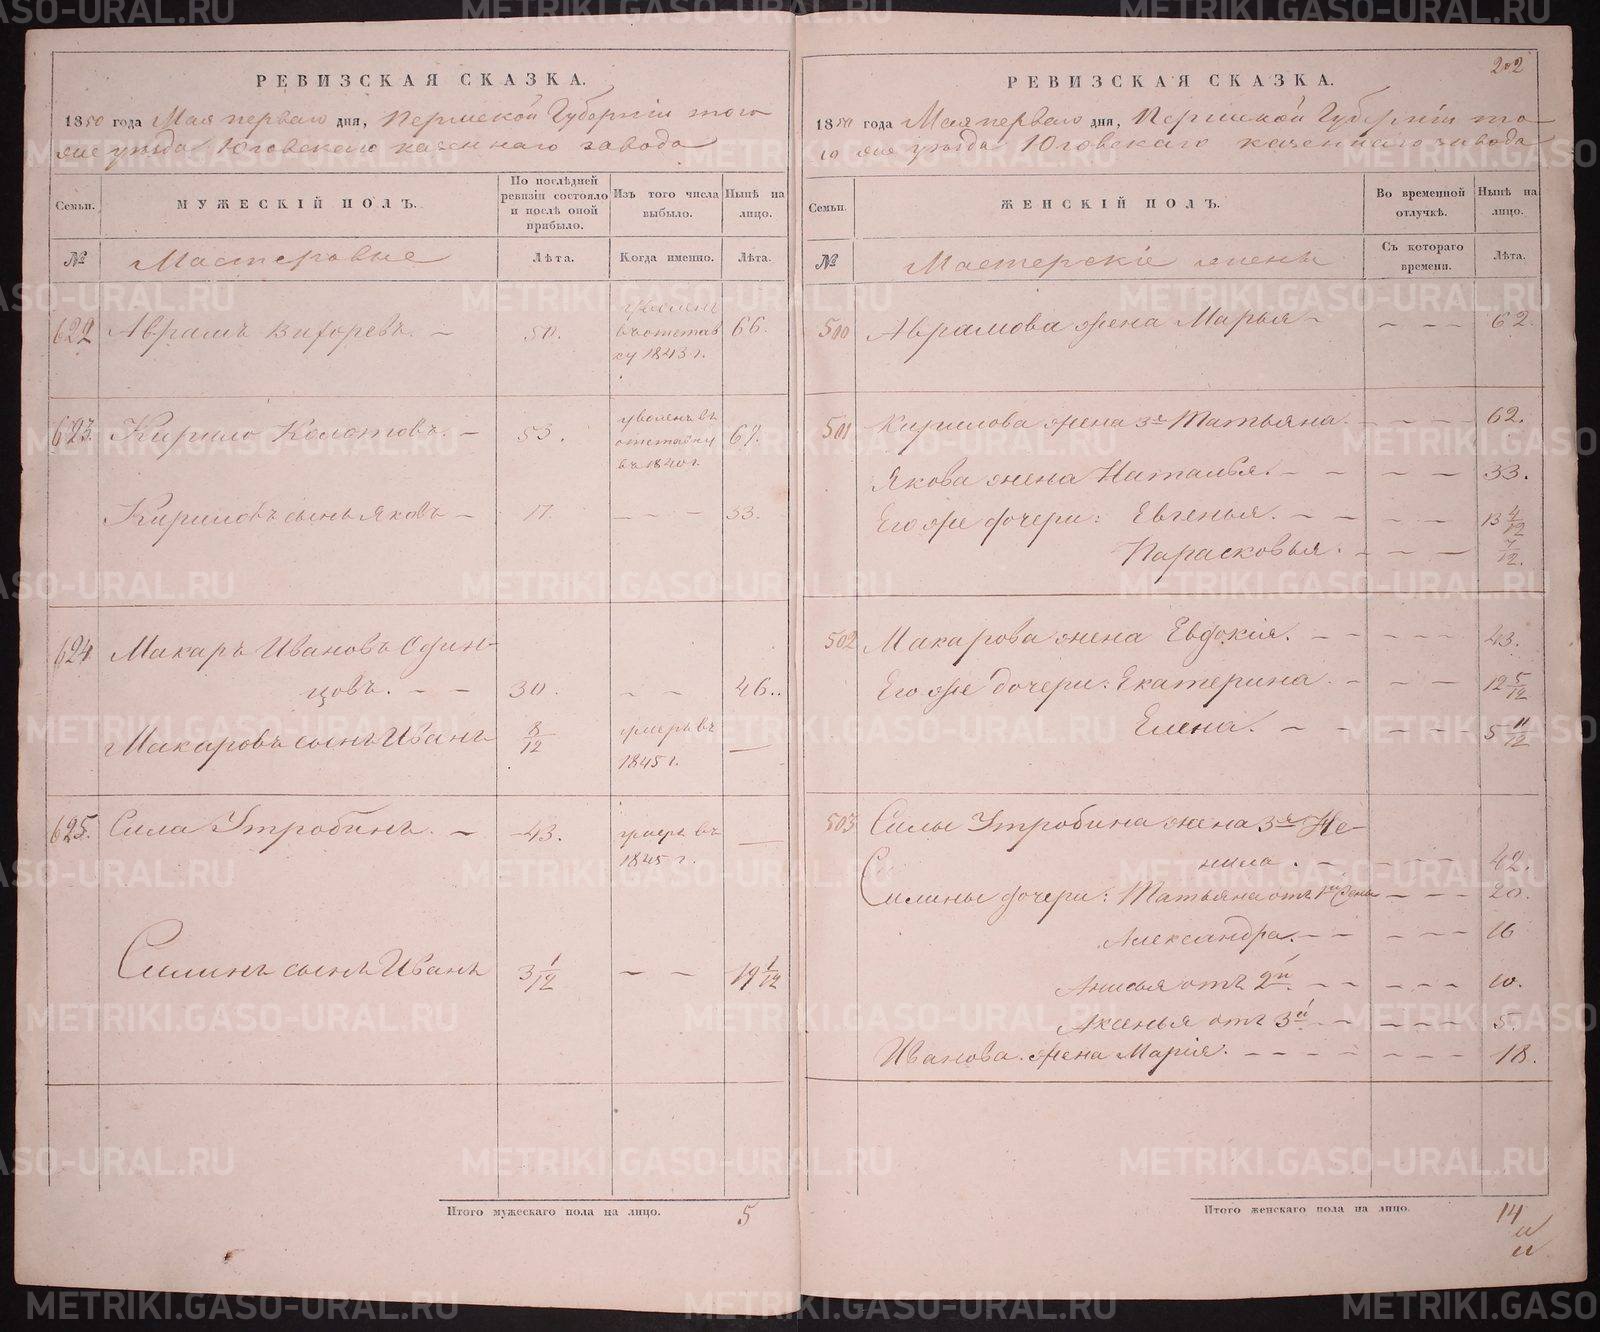 РЕВИЗСКАЯ СКАЗКА.
1850 года Мая перваго дня, Пермской Губерніи того
же уезда Юговскаго казеннаго завода
Семьи.
МУЖЕСКІЙ ПОЛЪ.
По послѣдней ревизіи состояло и послѣ оной прибыло.
Изъ того числа выбыло.
Нынѣ на лицо.
№
Мастеровые
Лѣта.
Когда именно.
Лѣта.
622 Аврамъ Вихоревъ. — 50. уволенъ въ отставку 1843 г. 66.
623. Кирило Колотовъ. — 53. уволенъ въ отставку въ 1840 г. 69.
Кириловъ сынъ Яковъ — 17 — — — 33.
624 Макаръ Ивановъ Один-
цовъ. — — 30. — — 46.
Макаровъ сынъ Иванъ 8/12 умеръ въ 1845 г. —
625. Сила Утробинъ. — 43. умеръ въ 1845 г. —
Силинъ сынъ Иванъ 3 1/12 — — 19 1/12
Итого мужескаго пола на лицо. 5
202
РЕВИЗСКАЯ СКАЗКА.
1850 года Мая перваго дня, Пермской Губерніи то
го же уезда Юговскаго казеннаго завода
Семьи.
ЖЕНСКІЙ ПОЛЪ.
Во временной отлучкѣ.
Нынѣ на лицо.
№
Мастерскіе жены
Съ котораго времени.
Лѣта.
500 Аврамова жена Марья — — — — 62.
501 Кирилова жена 3я Татьяна. — — — — 62.
Якова жена Наталья. — — — — 33.
Его же дочери: Евгенья. — — — — 13 4/12
Парасковья. — — — 7/12.
502 Макарова жена Евдокія. — — — — — 43.
Его же дочери: Екатерина. — — — — 12 5/12
Елена. — — — — — 5 11/12
503 Силы Утробина жена 3я Не-
нила. — — — — 42.
Силины дочери: Татьяна отъ 1й жены — — — 20.
Александра. — — — — — 16
Анисья отъ 2й. — — — — — 10.
Аксенья отъ 3й — — — — — 5.
Иванова жена Марія. — — — — — — 18.
Итого женскаго пола на лицо. 14
METRIKI.GASO-URAL.RU